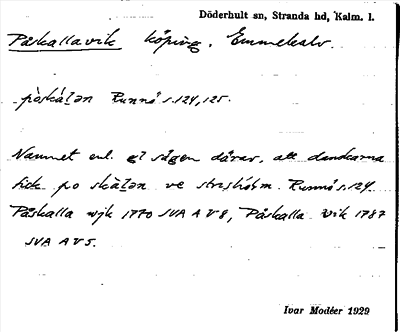 Döderhult sn, Stranda hd, Kalm. l.
Påskallavik köping. Emmekalv
påskálən Runnå s. 124, 125.
Namnet enl. sägen därav, att danskarna
fick po skálən ve Runnå s. 124
Påskalla wjk 1770 SVA A V 8, Påskalla vik 1787
SVA A V 5.
Ivar Modéer 1929